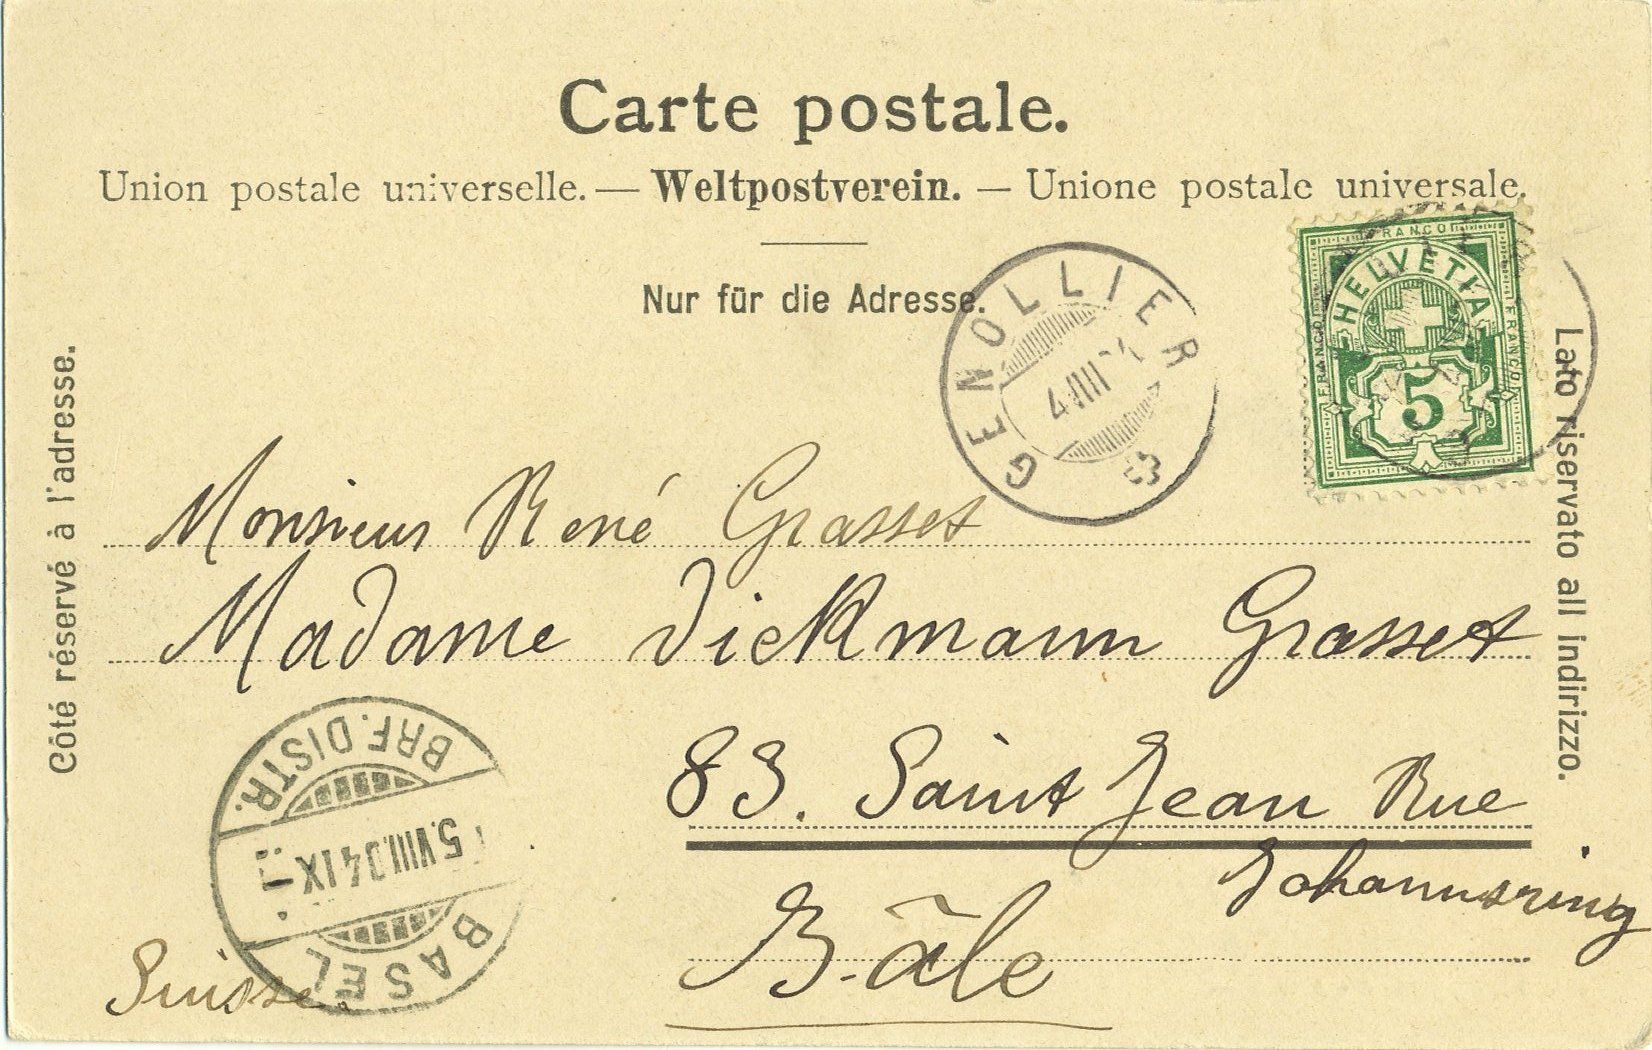 Carte postale.
Union postale universelle. — Weltpostverein. — Unione postale universale.
Nur für die Adresse.
Côté réservé à l'adresse.
Lato riservato all indirizzo.
GENOLLIER
FRANCO
HELVETIA
FRANCO
FRANCO
5
Monsieur René Grasset
Madame Dickmann Grasset
83. Saint Jean Rue
Johannsring
Bâle
Suisse.
BRF. DISTR.
5.VIII.04 IX
BASEL